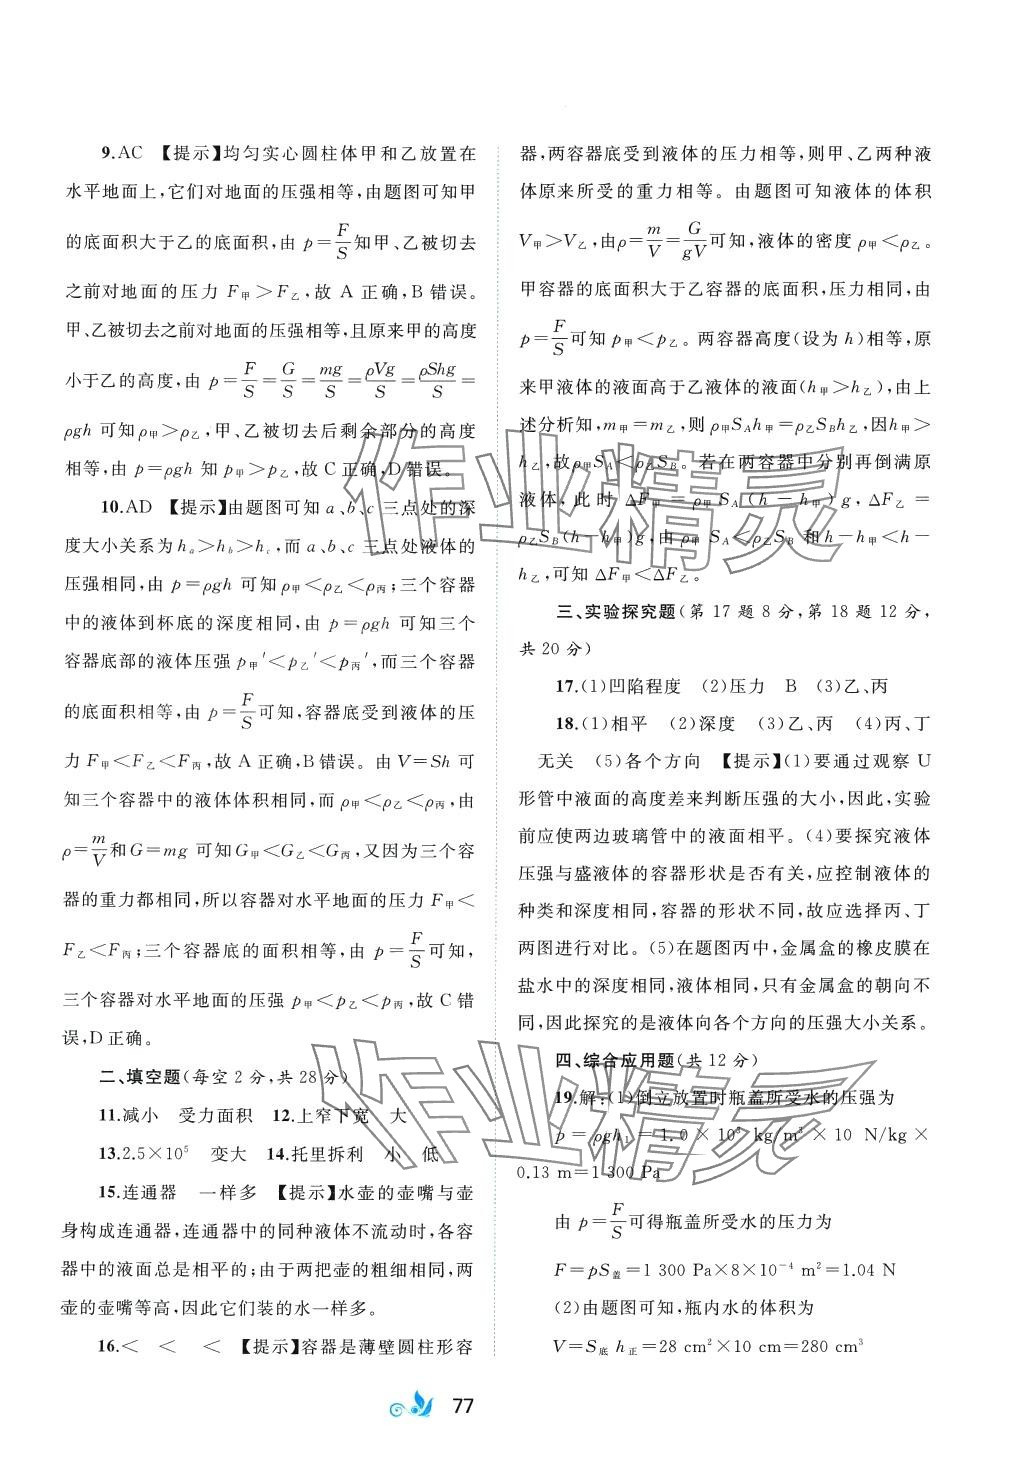 9.AC 【提示】均匀实心圆柱体甲和乙放置在
水平地面上,它们对地面的压强相等,由题图可知甲
的底面积大于乙的底面积,由 p=F/S知甲、乙被切去
之前对地面的压力 F甲>F乙,故 A 正确,B 错误。
甲、乙被切去之前对地面的压强相等,且原来甲的高度
小于乙的高度,由 p=F/S=G/S=mg/S=ρVg/S=ρShg/S=
ρgh 可知ρ甲>ρ乙,甲、乙被切去后剩余部分的高度
相等,由 p=ρgh 知 p甲>p乙,故 C 正确,D 错误。
10.AD 【提示】由题图可知 a、b、c 三点处的深
度大小关系为 ha>hb>hc,而 a、b、c 三点处液体的
压强相同,由 p=ρgh 可知ρ甲<ρ乙<ρ丙;三个容器
中的液体到杯底的深度相同,由 p=ρgh 可知三个
容器底部的液体压强 p甲′<p乙′<p丙′,而三个容器
的底面积相等,由 p=F/S可知,容器底受到液体的压
力 F甲<F乙<F丙,故 A 正确,B 错误。由 V=Sh 可
知三个容器中的液体体积相同,而 ρ甲<ρ乙<ρ丙,由
ρ=m/V和 G=mg 可知G甲<G乙<G丙,又因为三个容
器的重力都相同,所以容器对水平地面的压力 F甲<
F乙<F丙;三个容器底的面积相等,由 p=F/S可知,
三个容器对水平地面的压强 p甲<p乙<p丙,故 C 错
误,D 正确。
二、填空题(每空 2 分,共 28 分)
11.减小 受力面积 12.上窄下宽 大
13.2.5×10⁵ 变大 14.托里拆利 小 低
15.连通器 一样多 【提示】水壶的壶嘴与壶
身构成连通器,连通器中的同种液体不流动时,各容
器中的液面总是相平的;由于两把壶的粗细相同,两
壶的壶嘴等高,因此它们装的水一样多。
16.< < < 【提示】容器是薄壁圆柱形容
器,两容器底受到液体的压力相等,则甲、乙两种液
体原来所受的重力相等。由题图可知液体的体积
V甲>V乙,由ρ=m/V=G/gV可知,液体的密度 ρ甲<ρ乙。
甲容器的底面积大于乙容器的底面积,压力相同,由
p=F/S可知 p甲<p乙。两容器高度(设为 h)相等,原
来甲液体的液面高于乙液体的液面(h甲>h乙),由上
述分析知,m甲=m乙,则 ρ甲SAh甲=ρ乙SBh乙,因h甲>
h乙,故ρ甲SA<ρ乙SB。若在两容器中分别再倒满原
液体,此时 ΔF甲=ρ甲SA(h-h甲)g,ΔF乙=
ρ乙SB(h-h甲)g,由 ρ甲SA<ρ乙SB 和 h-h甲<h-
h乙,可知 ΔF甲<ΔF乙。
三、实验探究题(第 17 题 8 分,第 18 题 12 分,
共 20 分)
17.(1)凹陷程度 (2)压力 B (3)乙、丙
18.(1)相平 (2)深度 (3)乙、丙 (4)丙、丁
无关 (5)各个方向 【提示】(1)要通过观察 U
形管中液面的高度差来判断压强的大小,因此,实验
前应使两边玻璃管中的液面相平。(4)要探究液体
压强与盛液体的容器形状是否有关,应控制液体的
种类和深度相同,容器的形状不同,故应选择丙、丁
两图进行对比。(5)在题图丙中,金属盒的橡皮膜在
盐水中的深度相同,液体相同,只有金属盒的朝向不
同,因此探究的是液体向各个方向的压强大小关系。
四、综合应用题(共 12 分)
19.解:(1)倒立放置时瓶盖所受水的压强为
p=ρgh₁=1.0×10³ kg/m³×10 N/kg×
0.13 m=1 300 Pa
由 p=F/S可得瓶盖所受水的压力为
F=pS盖=1 300 Pa×8×10⁻⁴ m²=1.04 N
(2)由题图可知,瓶内水的体积为
V=S底 h正=28 cm²×10 cm=280 cm³
77
作业精灵
作业精灵